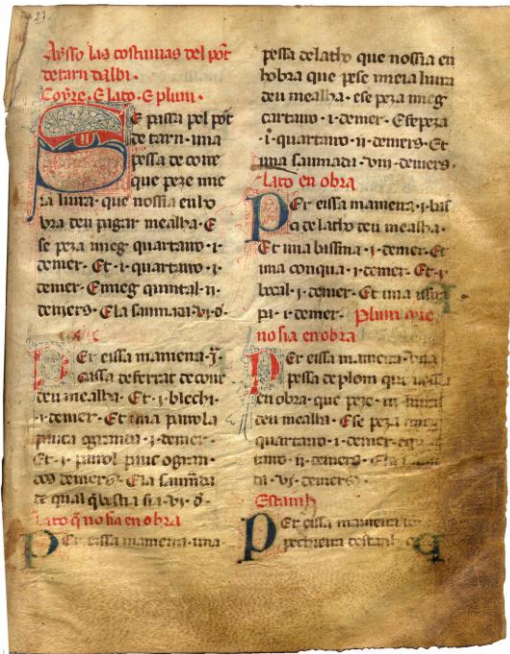 27.
Aysso las costumas del pot
de tarn dalbi.
Coyre. E lato. E plum.
Se passa pel pot
de tarn. una
pessa de coire
que peze mie
ia liura. que nossia en o
bra deu pagar mealha. E
se peza mieg quartairo .i.
denier. Et .i. quartairo .i.
denier. E mieg quintal .ii.
deniers. E la saumada .vi. d.
Per eissa maniera .i.
cassa de ferrat de coire
deu mealha. Et .i. blechi
.i. denier. Et una pairola
pauca o granda .i. denier.
Et .i. pairol pauc o gran
dos deniers. E la saumada
de qual q bestia sia .vi. d.
Lato q no sia en obra
Per eissa maniera. una
pessa de lato que nossia en
hobra que pese mieia liura
deu mealha. e se peza mieg
cartairo .i. denier. E se peza
.i. quartairo .ii. deniers. Et
una saumada .viii. deniers.
Lato en obra
Per eissa maniera .i. bas
de lato deu mealha.
Et una bassina .i. denier. Et
una conqua .i. denier. Et .i.
bocal .i. denier. Et una
.i. denier. Plum que
no sia en obra
Per eissa maniera. una
pessa de plom que
en obra. que peze
deu mealha. E se peza mieg
quartairo .i. denier. e
.ii. deniers. E la
.vi. deniers.
Estanh
Per eissa maniera
destanh